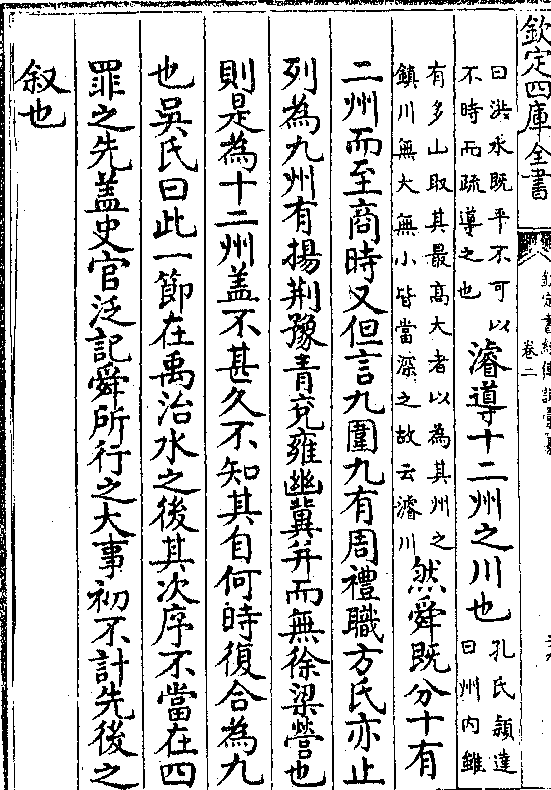 欽定四庫全書
欽定書經傳說彙纂
卷二
曰洪水既平不可以
不時而疏導之也
濬導十二州之川也
孔氏穎達
曰州內雖
有多山取其最高大者以為其州之
鎮川無大無小皆當深之故云濬川
然舜既分十有
二州而至商時又但言九圍九有周禮職方氏亦止
列為九州有揚荆豫青兗雍幽冀并而無徐梁營也
則是為十二州盖不甚久不知其自何時復合為九
也吳氏曰此一節在禹治水之後其次序不當在四
罪之先盖史官泛記舜所行之大事初不計先後之
叙也